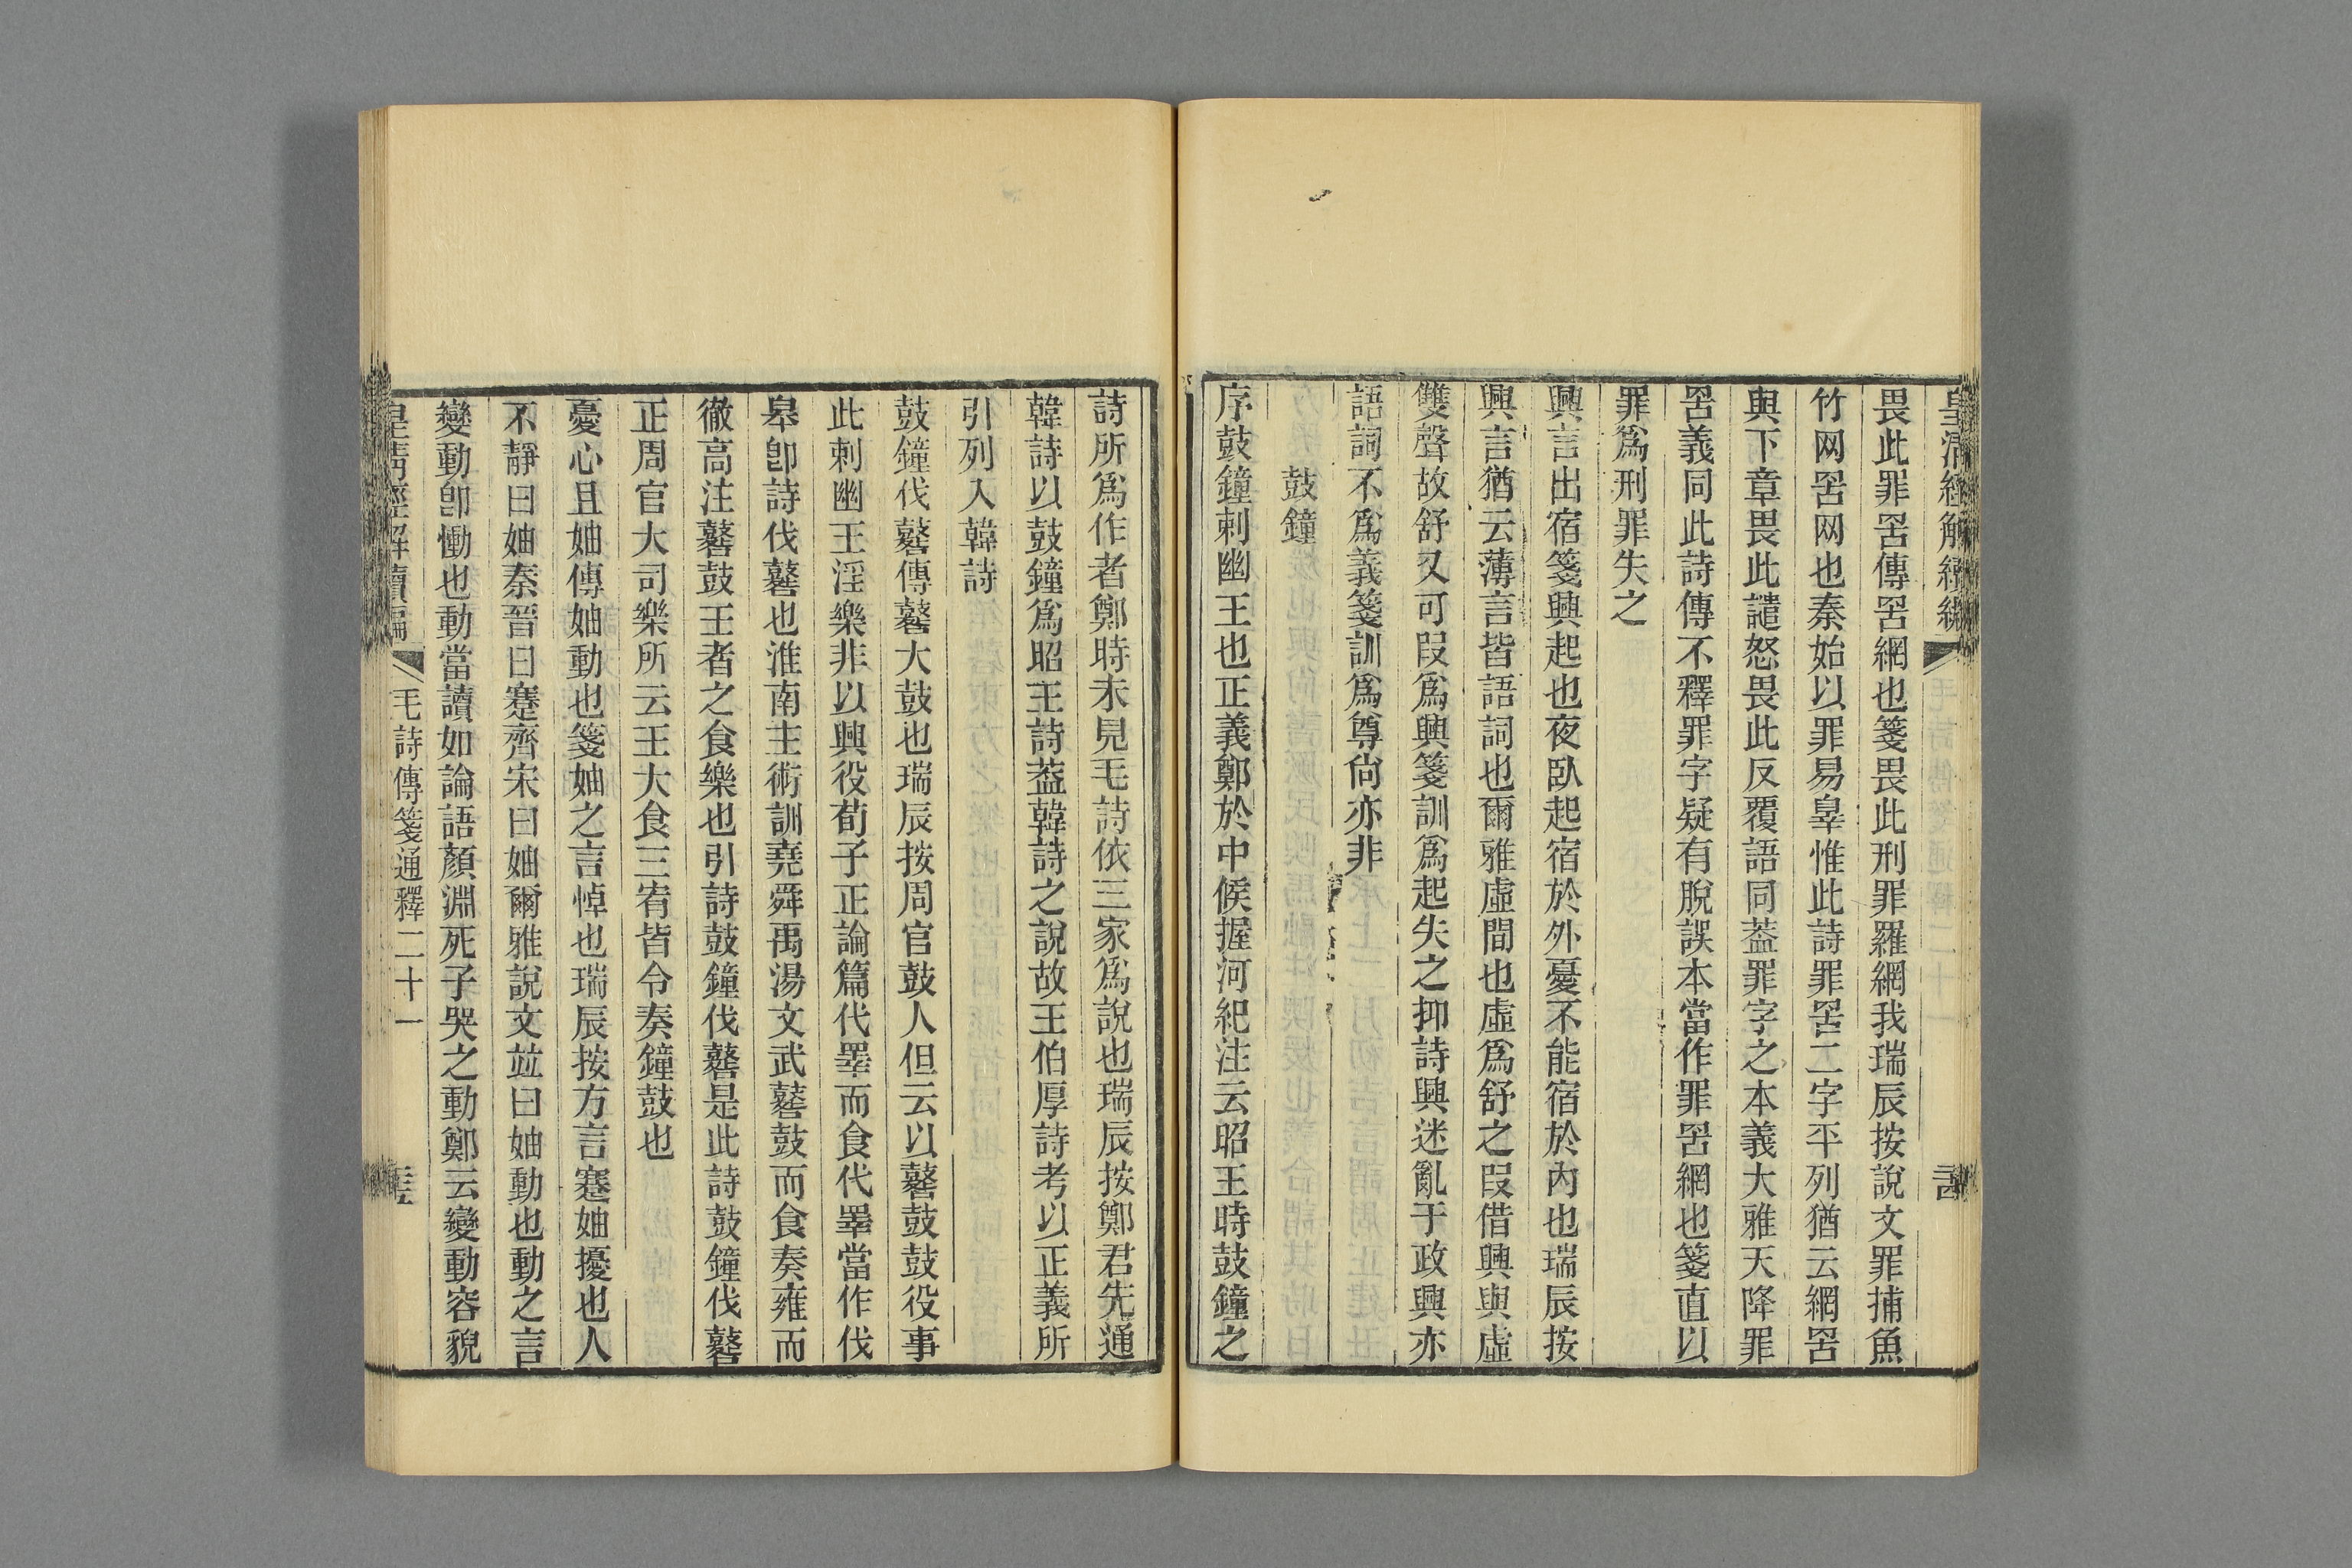 皇清經解續編
畏此罪罟傳罟網也箋畏此刑罪羅網我瑞辰按說文罪捕魚
竹网罟网也秦始以罪易辠惟此詩罪罟二字平列猶云網罟
與下章畏此譴怒畏此反覆語同葢罪字之本義大雅天降罪
罟義同此詩傳不釋罪字疑有脫誤本當作罪罟網也箋直以
罪爲刑罪失之
興言出宿箋興起也夜臥起宿於外憂不能宿於內也瑞辰按
興言猶云薄言皆語詞也爾雅虛間也虛爲舒之叚借興與虛
雙聲故舒又可叚爲興箋訓爲起失之抑詩興迷亂于政興亦
語詞不爲義箋訓爲尊尙亦非
鼓鐘
序鼓鐘刺幽王也正義鄭於中候握河紀注云昭王時鼓鐘之
詩所爲作者鄭時未見毛詩依三家爲說也瑞辰按鄭君先通
韓詩以鼓鐘爲昭王詩葢韓詩之說故王伯厚詩考以正義所
引列入韓詩
鼓鐘伐鼛傳鼛大鼓也瑞辰按周官鼓人但云以鼛鼓鼓役事
此刺幽王淫樂非以興役荀子正論篇代睪而食代睪當作伐
皋卽詩伐鼛也淮南主術訓堯舜禹湯文武鼛鼓而食奏雍而
徹高注鼛鼓王者之食樂也引詩鼓鐘伐鼛是此詩鼓鐘伐鼛
正周官大司樂所云王大食三宥皆令奏鐘鼓也
憂心且妯傳妯動也箋妯之言悼也瑞辰按方言蹇妯擾也人
不靜曰妯秦晉曰蹇齊宋曰妯爾雅說文竝曰妯動也動之言
變動卽慟也動當讀如論語顏淵死子哭之動鄭云變動容貌
皇清經解續編
毛詩傳箋通釋二十一